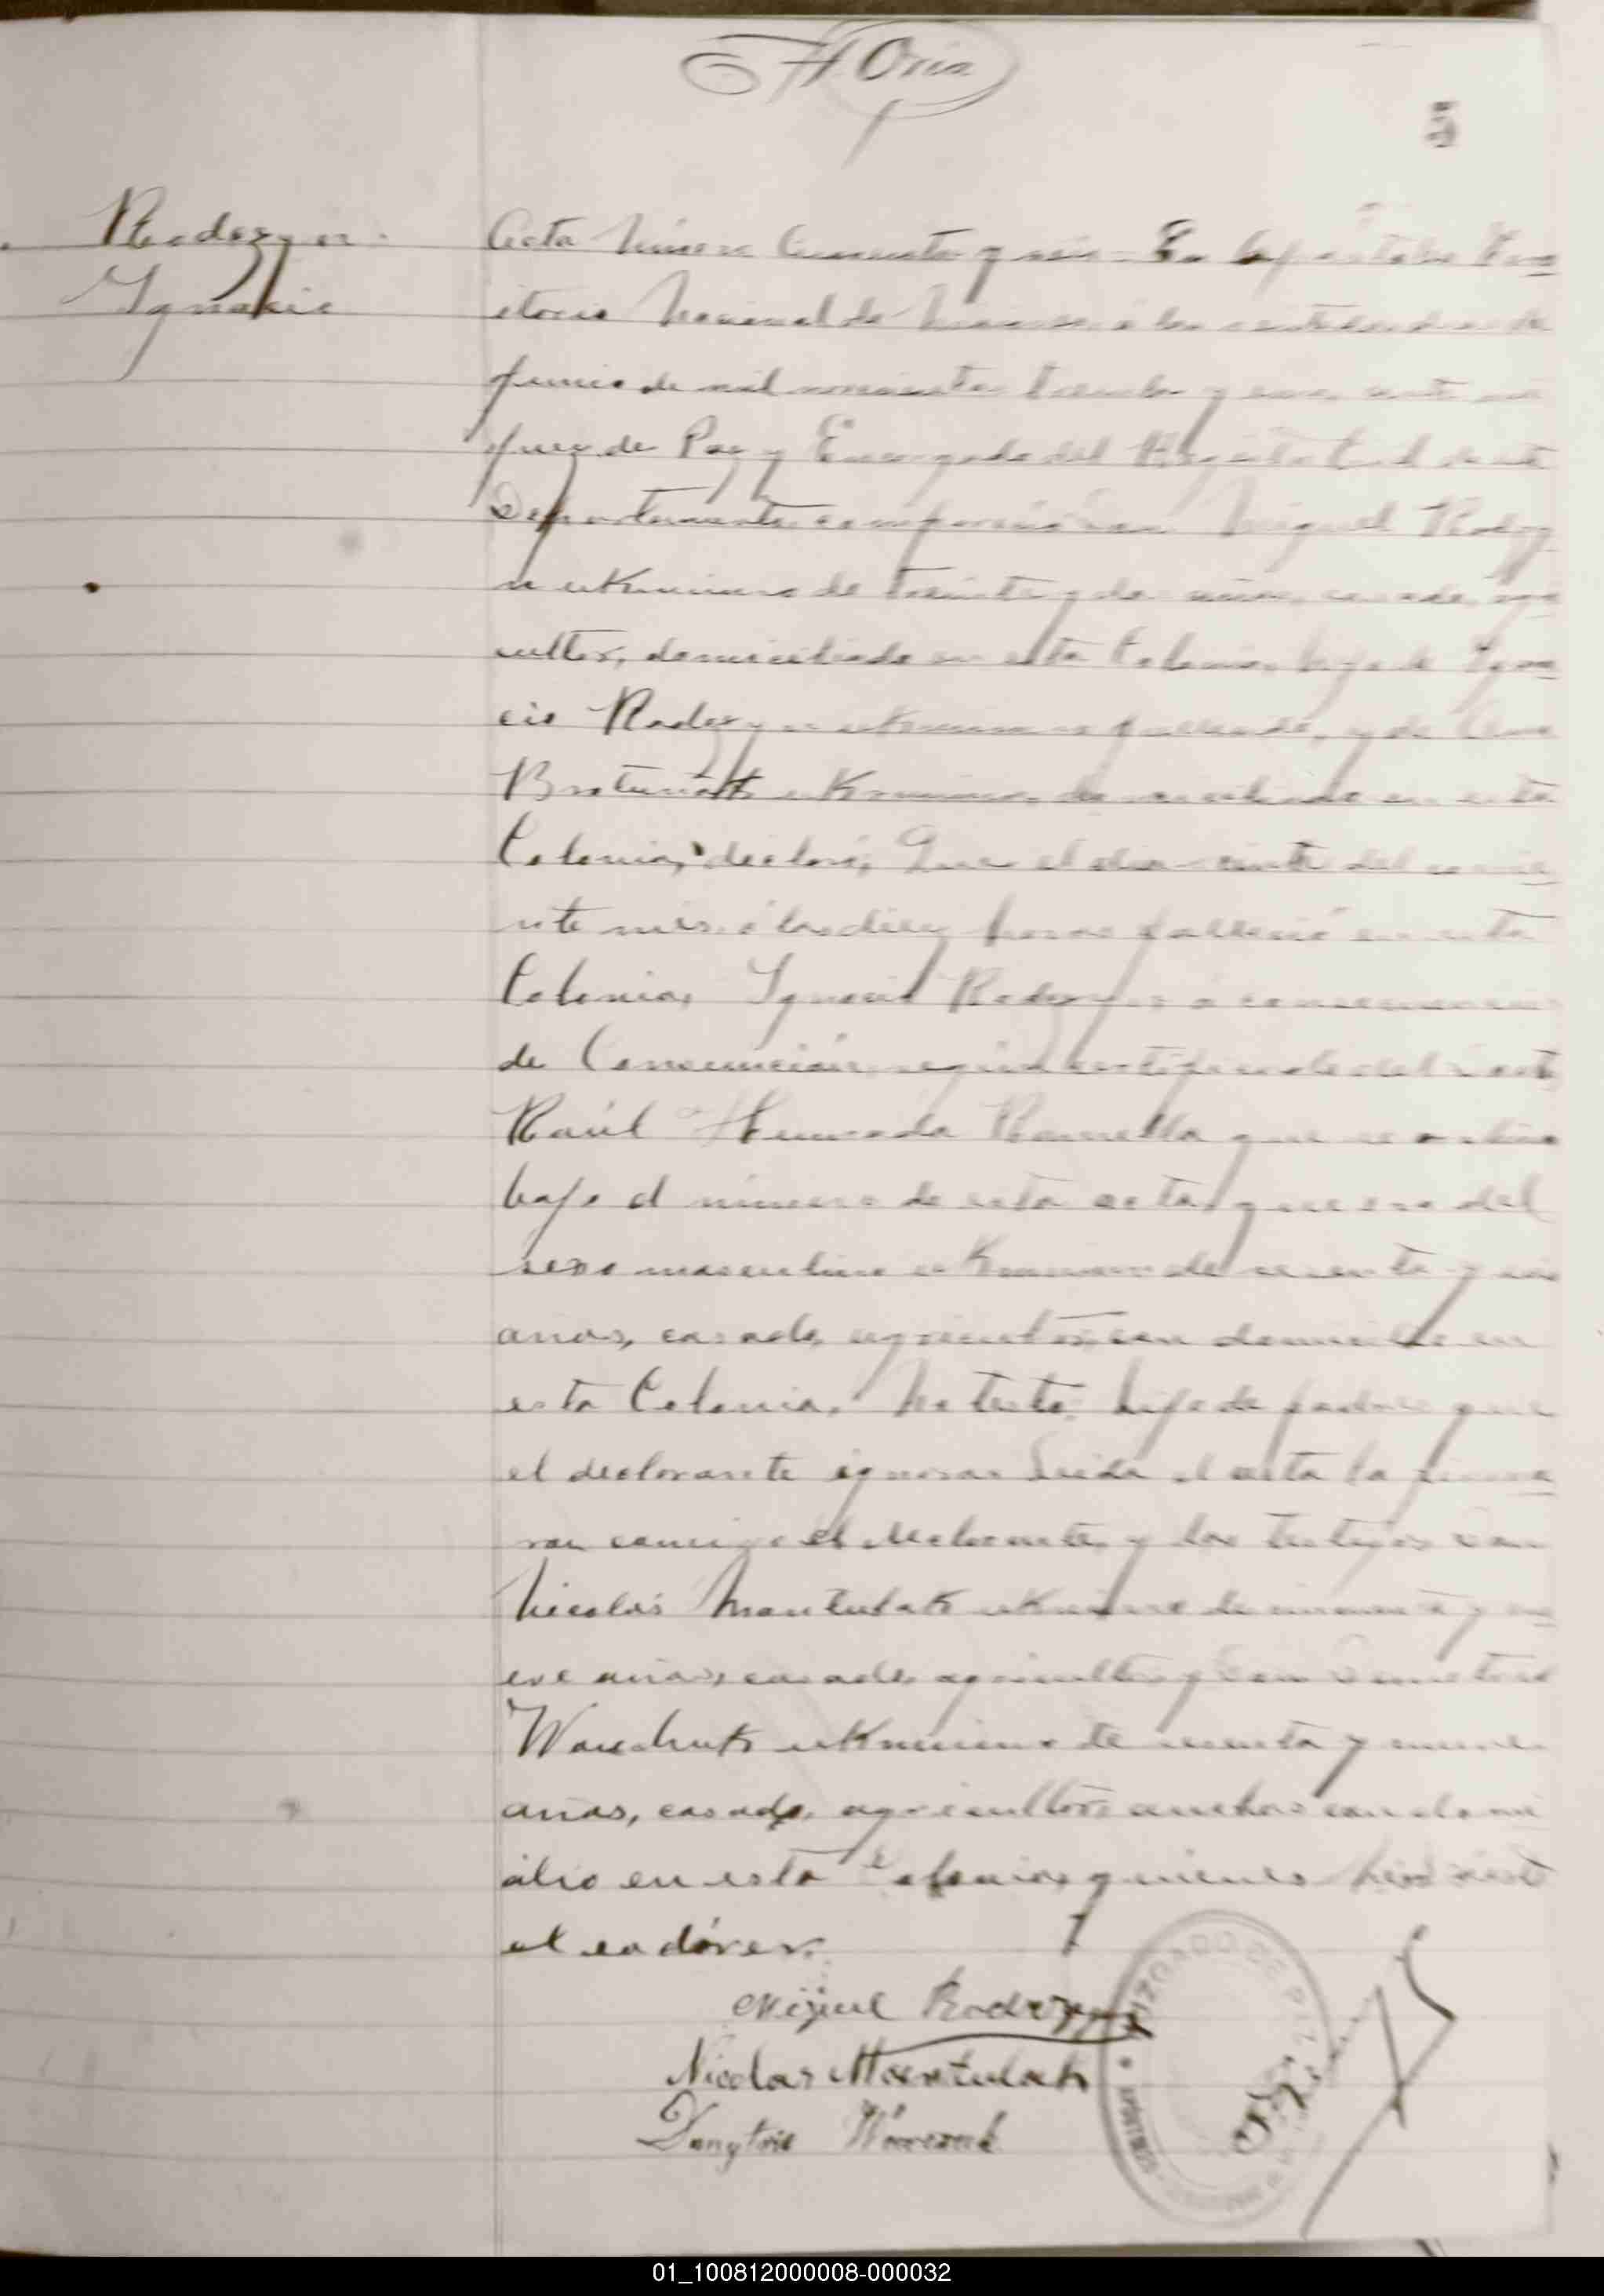 5
Radozyn
Ignacio
Acta Número Cincuenta y seis = En Apóstoles Terr
itorio Nacional de Misiones a los veintidos dias de
Junio de mil novecientos treinta y ante mi
Juez de Paz y Encargado del Registro Civil de este
Departamento compareció Don Miguel Radozy
n ukraniano de treinta y dos años, casado, agri
cultor, domiciliado en esta Colonia, hijo de Igna
cio Radozyn ukraniano fallecido, y de Ana
ukraniana domiciliada en esta
Colonia, declaró; Que el dia veinte del corrie
nte mes, a las diez horas falleció en esta
Colonia, Ignacio Radozyn a consecuencia
de Consunción, según certificado del
Raúl que se archiva
bajo el número de esta acta, que era del
sexo masculino ukraniano de sesenta y seis
años, casado, agricultor, con domicilio en
esta Colonia. No testó: hijo de padres que
el declarante ignora. Leida el acta la firma
ron conmigo el declarante, y los testigos Don
Nicolás Mantulak ukraniano de cincuenta y nu
eve años, casado, agricultor y Don Demetrio
ukraniano de sesenta y nueve
años, casado, agricultor, ambos con domi
cilio en esta Colonia, quienes han visto
el cadáver.
Miguel Radozyn
Nicolas Mantulak
JUZGADO DE PAZ
APÓSTOLES
01_100812000008-000032